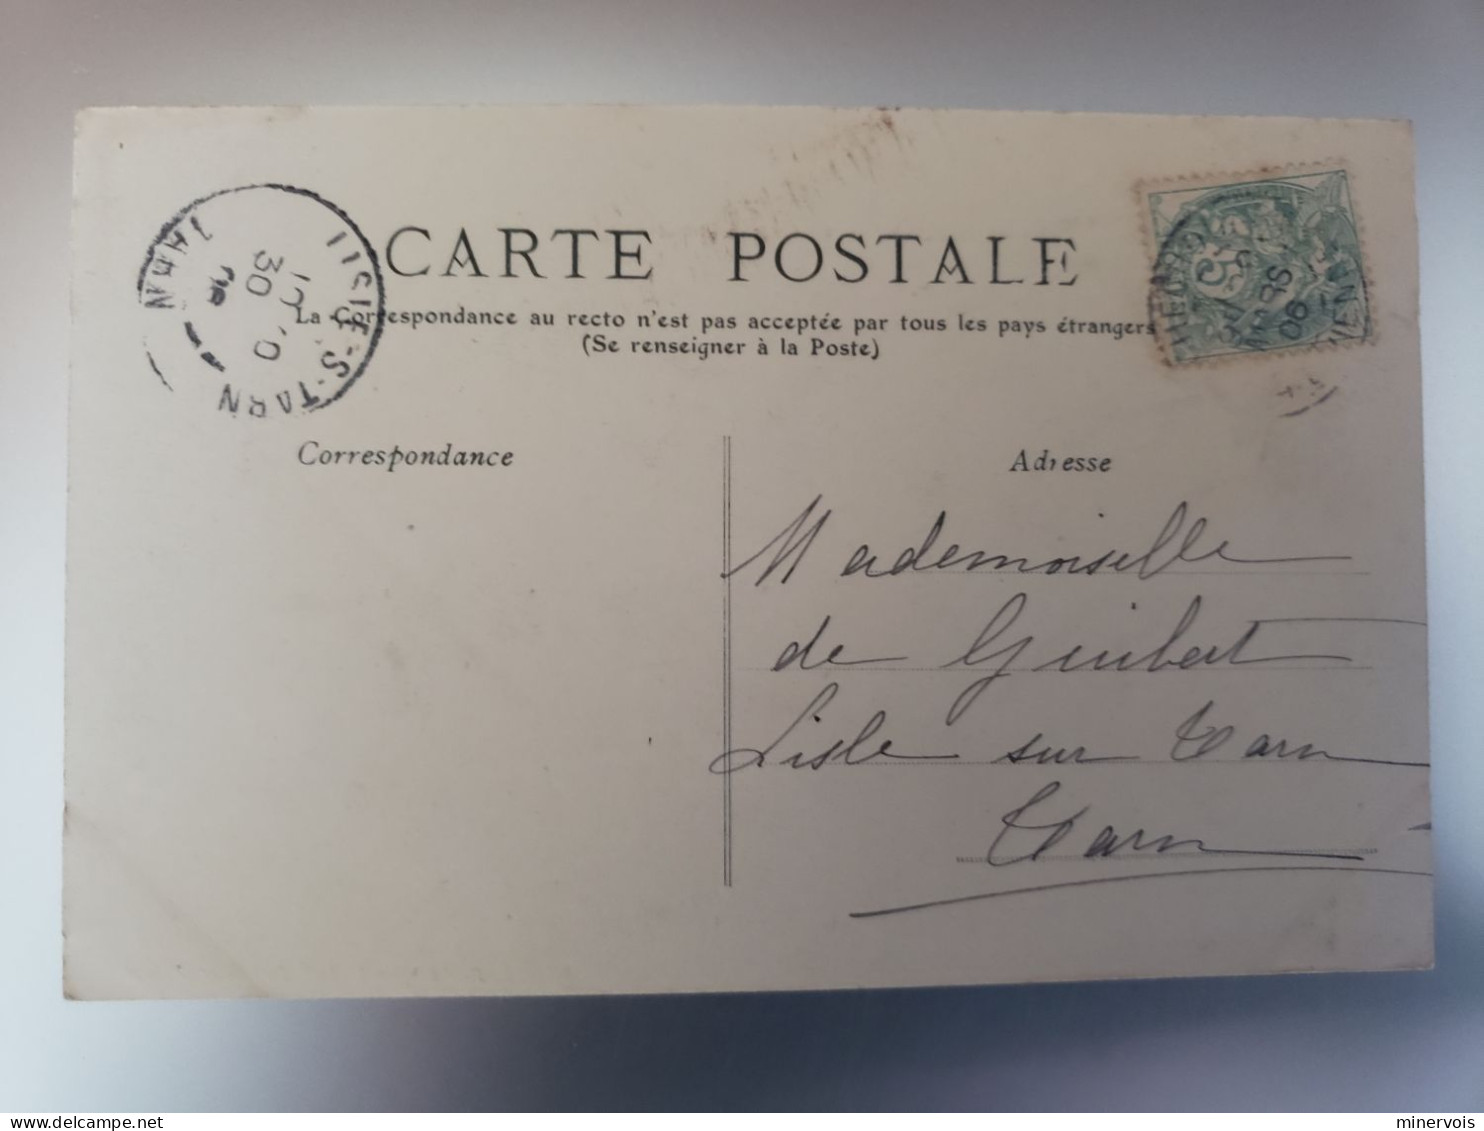 CARTE POSTALE
La Correspondance au recto n'est pas acceptée par tous les pays étrangers
(Se renseigner à la Poste)
Correspondance
Adresse
Mademoiselle
de Guibert
Lisle sur Tarn
Tarn
LISLE-S-TARN
TARN
30
06
5
06
minervois